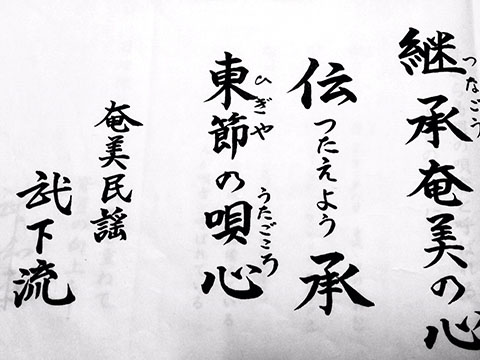 継承奄美の心
つなごう
伝つたえよう承
東節の唄心
ひぎや
うたごころ
奄美民謡
武下流